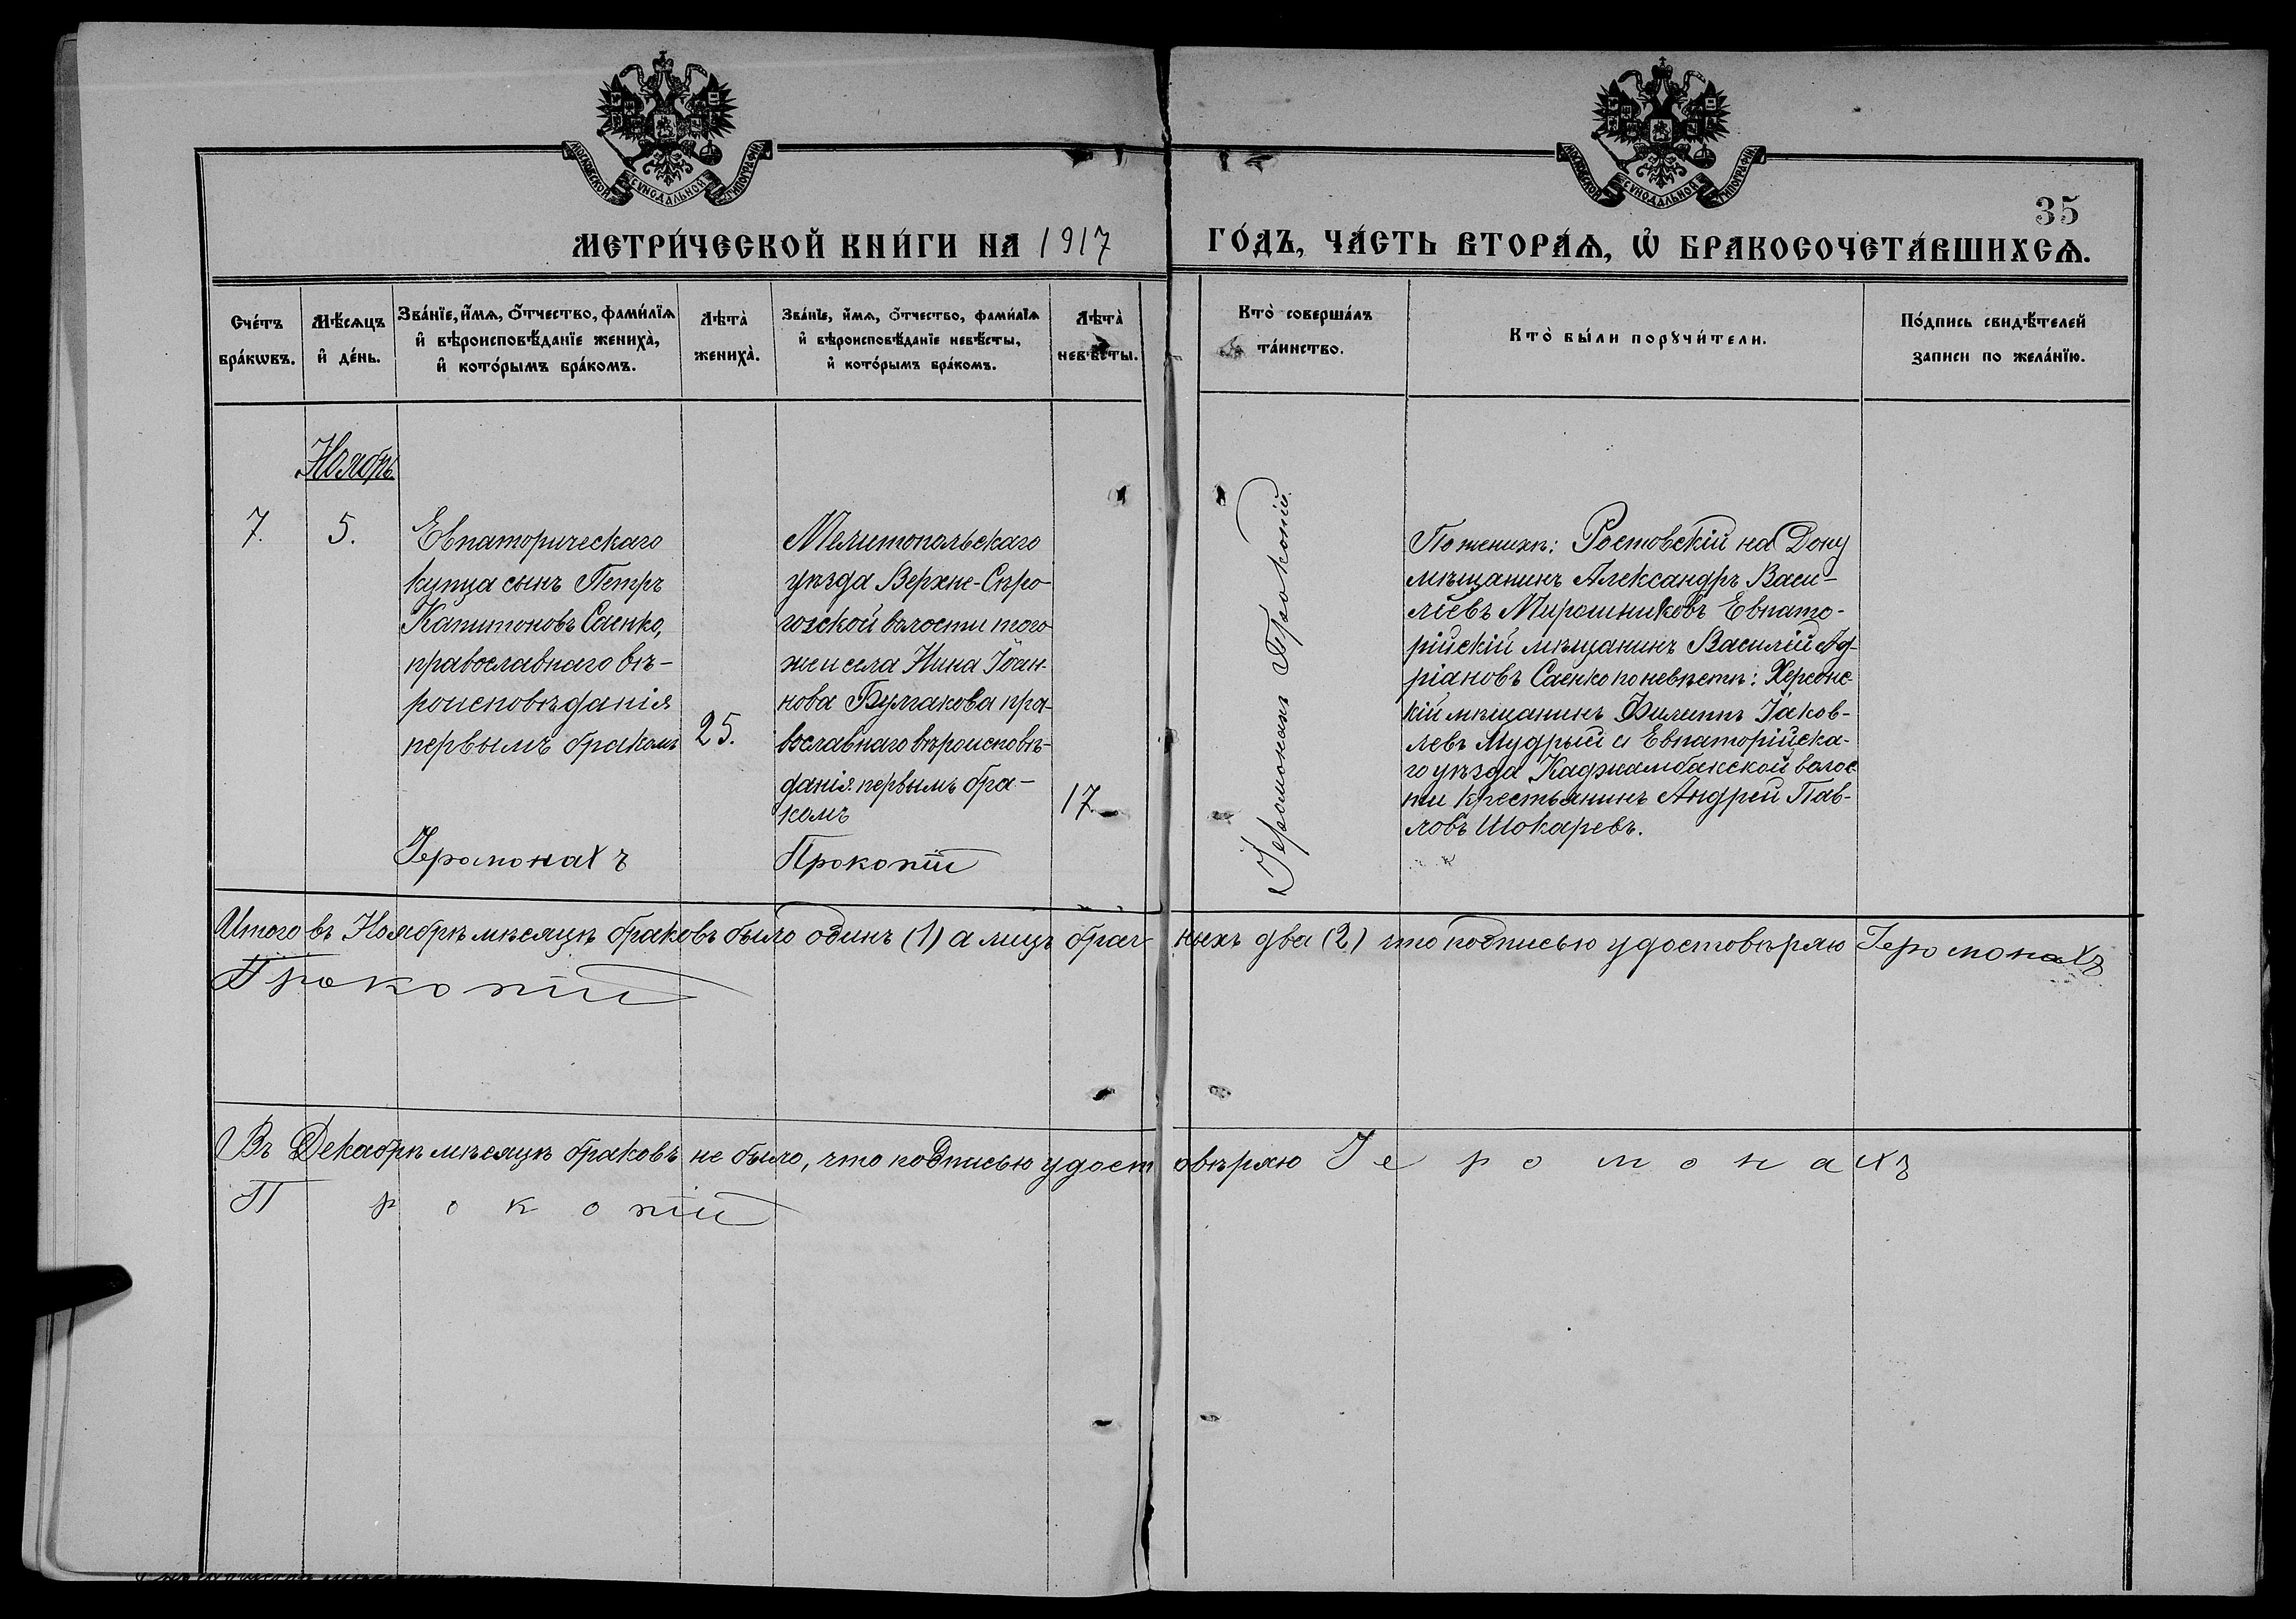 МОСКОВСКОЙ СѴНОДАЛЬНОЙ ТИПОГРАФІИ
МОСКОВСКОЙ СѴНОДАЛЬНОЙ ТИПОГРАФІИ
35
МЕТРИ́ЧЕСКОЙ КНИ́ГИ НА 1917
ГО́ДЪ, ЧА́СТЬ ВТОРА́Ѧ, Ѡ҆ БРАКОСОЧЕТА́ВШИХСѦ.
Сче́тъ
бра́кѡвъ.
Мѣ́сѧцъ
и҆ де́нь.
Зва́нїе, и҆́мѧ, ѻ҆́тчество, фами́лїѧ
и҆ вѣроисповѣ́данїе жениха̀,
и҆ кото́рымъ бра́комъ.
Лѣта̀
жениха̀.
Зва́нїе, и҆́мѧ, ѻ҆́тчество, фами́лїѧ
и҆ вѣроисповѣ́данїе невѣ́сты,
и҆ кото́рымъ бра́комъ.
Лѣта̀
невѣ́сты.
Кто̀ соверша́лъ
та́инство.
Кто̀ бы́ли порꙋчи́тели.
По́дпись свидѣ́телей
записи по жела́нїю.
Ноябрь
7.
5.
Евпаторическаго
купца сынъ Петръ
Капитоновъ Саенко,
православнаго вѣ-
роисповѣданія
первымъ бракомъ
25.
Мелитопольскаго
уѣзда Верхне-Сѣро-
гозской волости того
же и села Нина Іоан-
нова Булгакова пра-
вославнаго вѣроисповѣ-
данія первымъ бра-
комъ
17.
Іеромонахъ Прокопій
Іеромонахъ Прокопій.
По женихѣ: Ростовскій на Дону
мѣщанинъ Александръ Васи-
ліевъ Мирошниковъ Евпато-
рійскій мѣщанинъ Василій Ад-
ріановъ Саенко по невѣстѣ: Херсонс-
кій мѣщанинъ Филиппъ Іаков-
левъ Мудрый и Евпаторійска-
го уѣзда Каджамбакской волос-
ти крестьянинъ Андрей Пав-
ловъ Шокаревъ.
Итого въ Ноябрѣ мѣсяцѣ браковъ было одинъ (1) а лицъ брач-ныхъ два (2) что подписью удостовѣряю Іеромонахъ
Прокопій
Въ Декабрѣ мѣсяцѣ браковъ не было, что подписью удостовѣряю Іеромонахъ
Прокопій